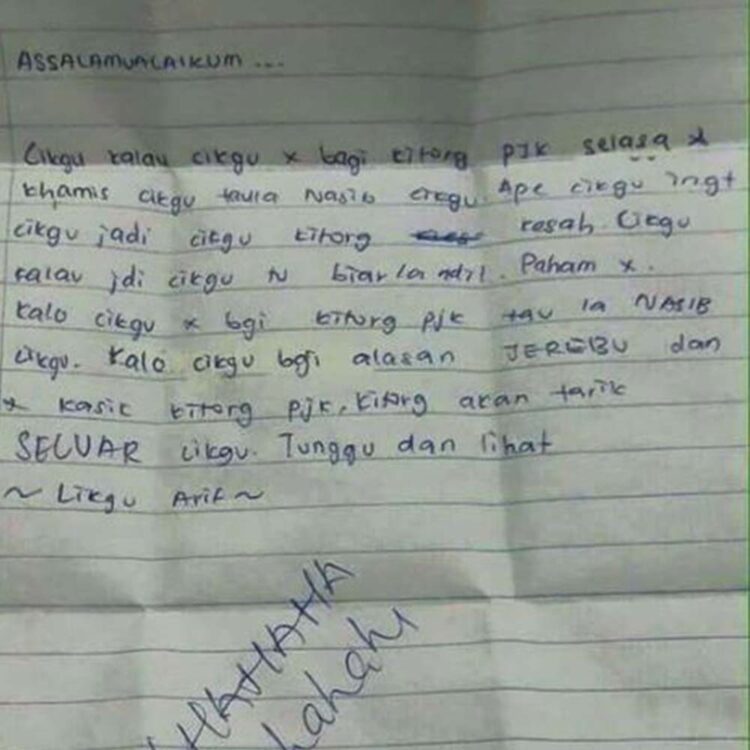 ASSALAMUALAIKUM ...
Cikgu kalau cikgu x bagi kitorg PJK selasa x
khamis cikgu taula Nasib cikgu. Ape cikgu ingt
cikgu jadi cikgu kitorg kesah. Cikgu
kalau jdi cikgu tu biar la adil. Paham x.
kalo cikgu x bgi kitorg pjk tau la NASIB
cikgu. kalo cikgu bgi alasan JEREBU dan
x kasik kitorg pjk, kitorg akan tarik
SELUAR cikgu. Tunggu dan lihat
~ Cikgu Arif ~
HAHAHAHA
hahaha